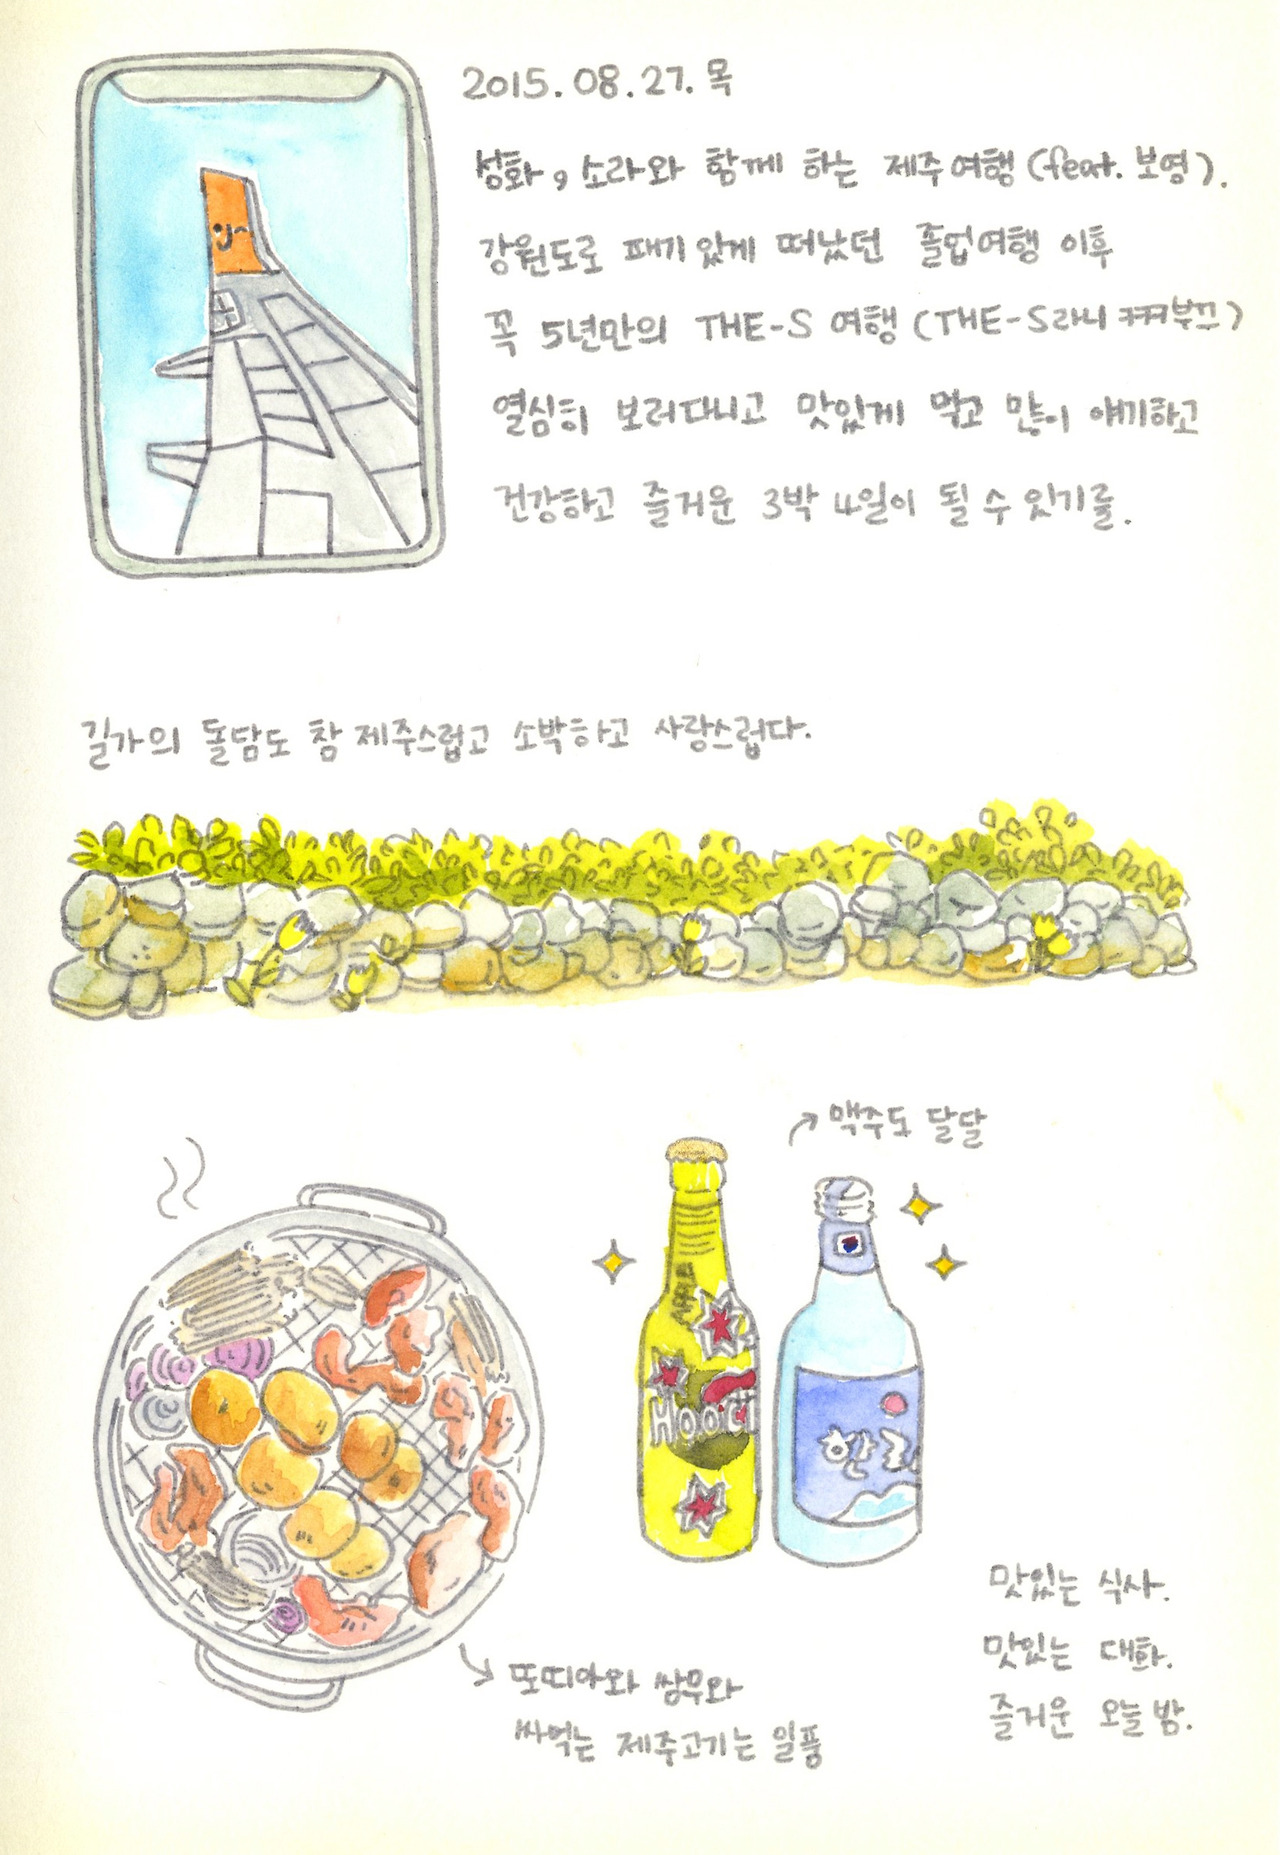 2015.08.27.목
성화, 소라와 함께 하는 제주여행(feat. 보영).
강원도로 패기있게 떠났던 졸업여행 이후
꼭 5년만의 THE-S 여행 (THE-S라니 ㅋㅋㅋ부끄)
열심히 보러다니고 맛있게 먹고 많이 얘기하고
건강하고 즐거운 3박 4일이 될 수 있기를.
길가의 돌담도 참 제주스럽고 소박하고 사랑스럽다.
맥주도 달달
APPLE
Hooch
한라
또띠아와 쌈무와
싸먹는 제주고기는 일품
맛있는 식사.
맛있는 대화.
즐거운 오늘 밤.